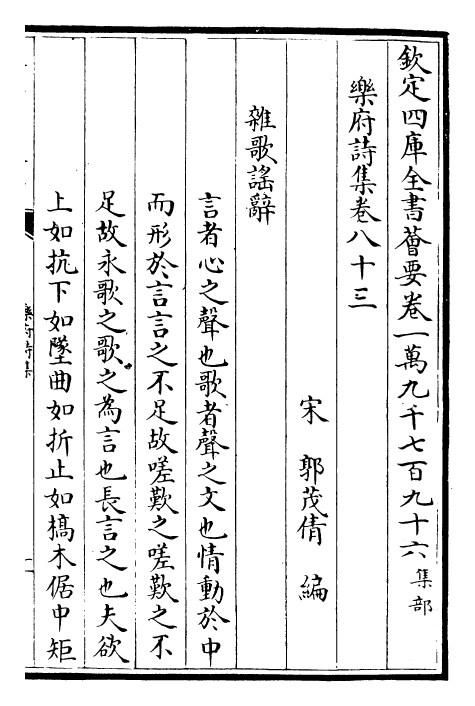 欽定四庫全書薈要卷一萬九千七百九十六集部
樂府詩集卷八十三
宋 郭茂倩 編
雜歌謠辭
言者心之聲也歌者聲之文也情動於中
而形於言言之不足故嗟歎之嗟歎之不
足故永歌之歌之為言也長言之也夫欲
上如抗下如墜曲如折止如槁木倨中矩
樂府詩集